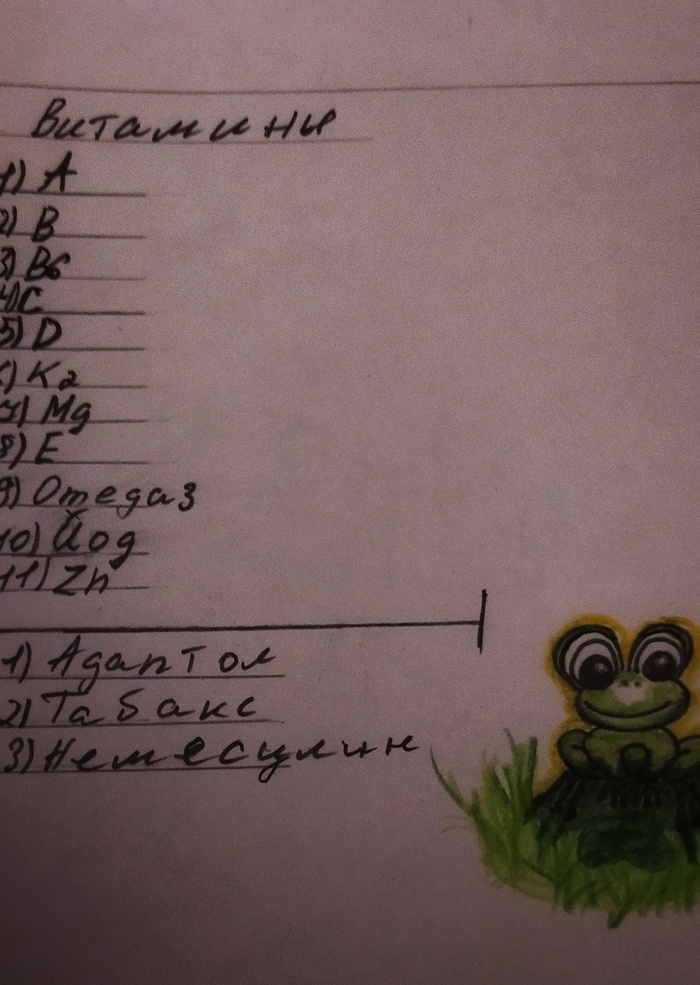 Витамины
1) A
2) B
3) B6
4) C
5) D
6) K2
7) Mg
8) E
9) Омега 3
10) Йод
11) Zn
1) Адаптол
2) Табакс
3) Немесулин